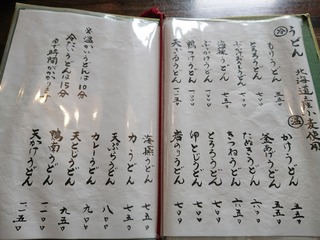 うどん
北海道産小麦使用
冷
もりうどん 五五〇
とろろうどん 七〇〇
ぶっかけうどん
鴨つけうどん 一一〇〇
天ざるうどん 一一五〇
温
かけうどん 五五〇
釜あげうどん 五五〇
たぬきうどん 六五〇
きつねうどん 六五〇
とろろうどん 七〇〇
卵とじうどん 七〇〇
岩のりうどん 七〇〇
海藻うどん 七五〇
力うどん 七五〇
天ぷらうどん 八〇〇
カレーうどん 九〇〇
天とじうどん 九五〇
鴨南うどん 一一〇〇
天かけうどん 一一五〇
※温かいうどんは10分
冷たいうどんは15分
ゆで時間がかかります